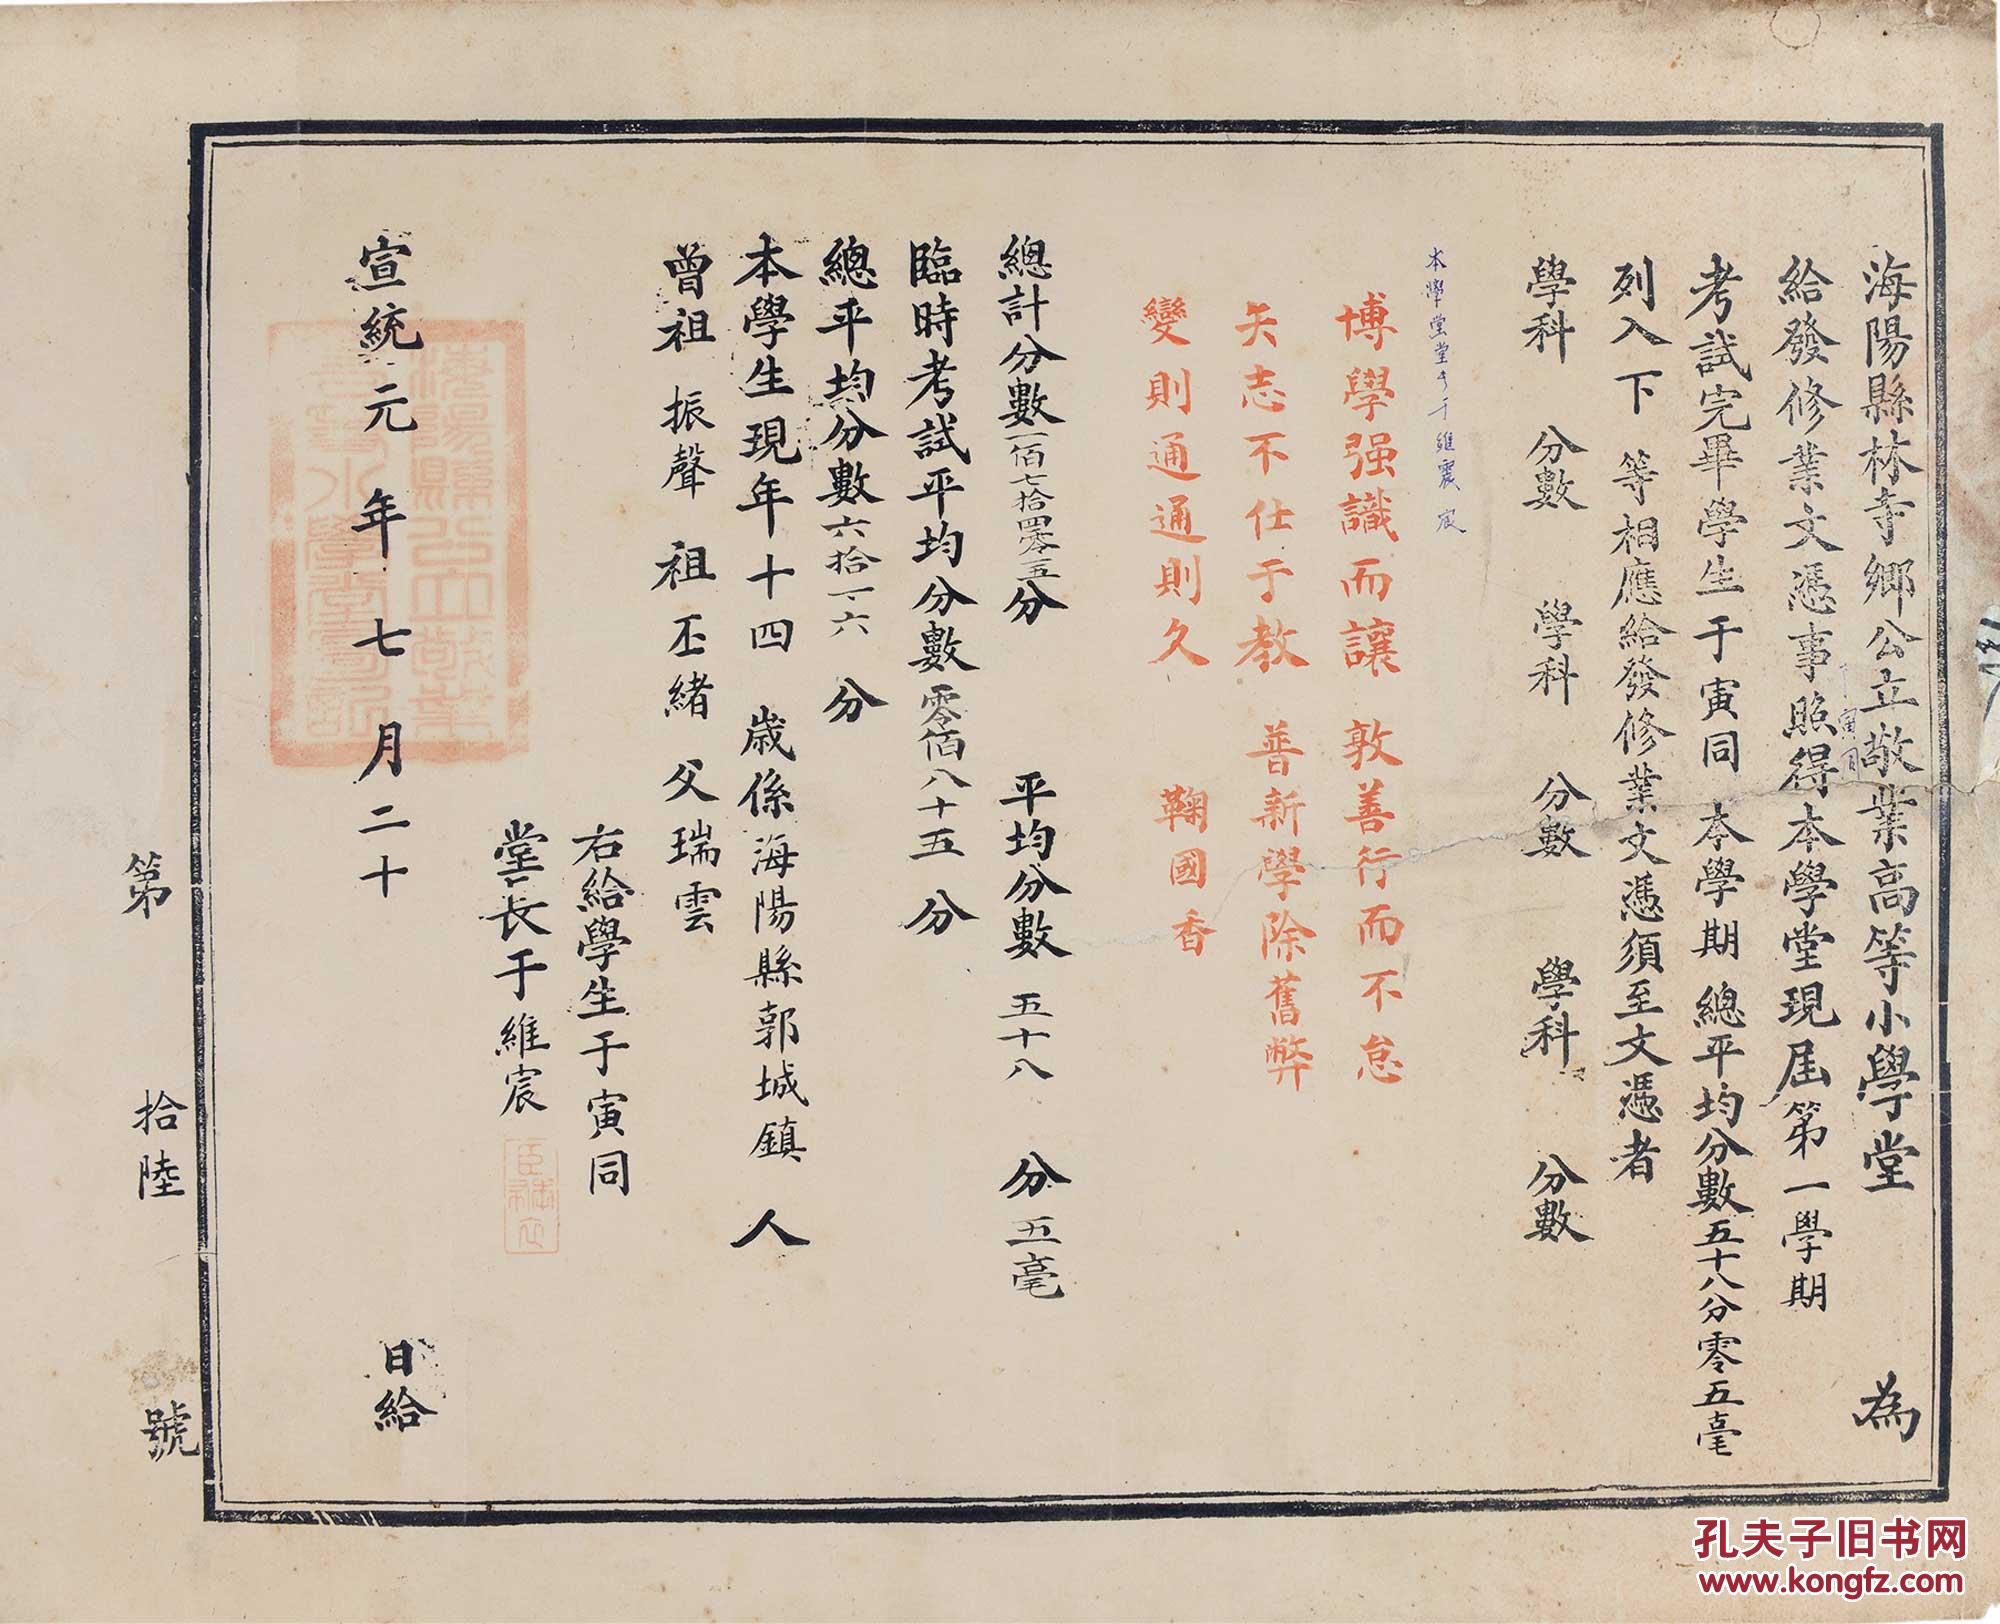 海陽縣林寺鄉公立敬業高等小學堂 為
給發修業文憑事照得本學堂現屆第一學期
考試完畢學生于寅同 本學期 總平均分數五十八分零五毫
列入下 等相應給發修業文憑須至文憑者
學科 分數 學科 分數 學科 分數
博學强識而讓 敦善行而不怠
矢志不仕于教 普新學除舊弊
變則通通則久 鞠國香
總計分數一佰七拾四零五分 平均分數 五十八 分 五毫
臨時考試平均分數零佰八十五 分
總平均分數六拾一六 分
本學生現年十四 歲係海陽縣郭城鎮 人
曾祖 振聲 祖 丕緒 父 瑞雲
右給學生于寅同
堂長于維宸
宣統元年七月二十 日給
第 拾陸 號
孔夫子旧书网
www.kongfz.com